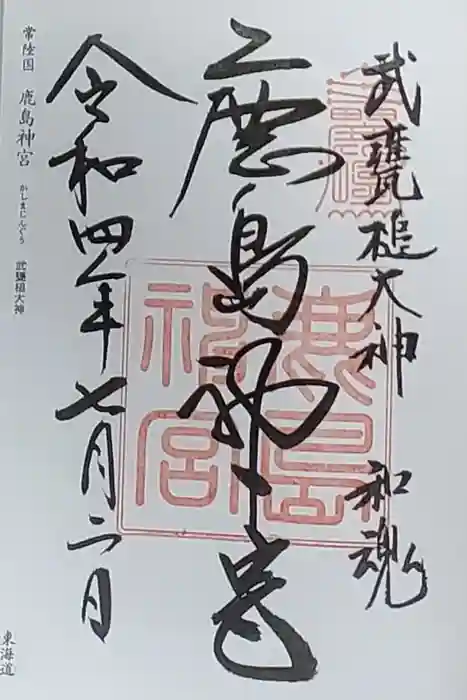 武甕槌大神 和魂
鹿島神宮
令和四年七月二日
常陸国 鹿島神宮 かしまじんぐう 武甕槌大神
東海道
鹿島
神宮